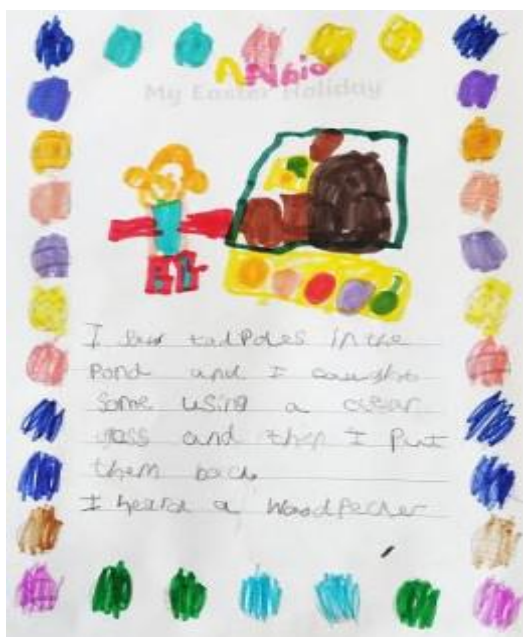 My Easter Holiday
I saw tadPoles in the
Pond and I caught
Some using a clear
and then I Put
them back
I heard a Woodpecker